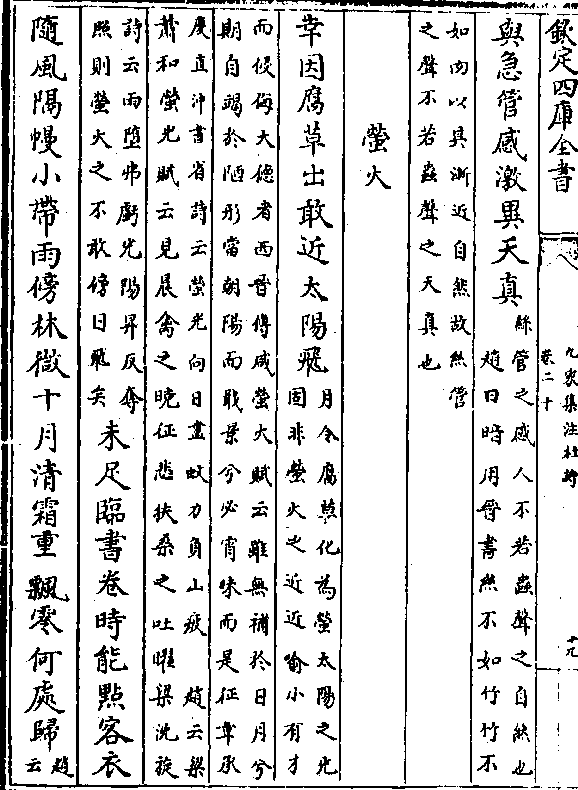 欽定四庫全書
九家集注杜詩
卷二十
十九
與急管感激異天真
絲管之感人不若蟲聲之自然也
趙曰暗用晉書絲不如竹竹不
如肉以其漸近自然故絲管
之聲不若蟲聲之天真也
螢火
幸因腐草出敢近太陽飛
月令腐草化為螢太陽之光
固非螢火之近近喻小有才
而侵侮大德者西晉傅咸螢火賦云雖無補於日月兮
期自竭於陋形當朝陽而戢景兮必宵昧而是征韋承
慶直沖書省詩云螢光向日盡蚊力負山疲 趙云梁
蕭和螢光賦云見晨禽之晚征悲扶桑之吐曜梁沈旋
詩云雨墮弗虧光陽昇反奪
照則螢火之不敢傍日飛矣
未足臨書卷時能點客衣
隨風隔幔小帶雨傍林微十月清霜重飄零何處歸
趙
云